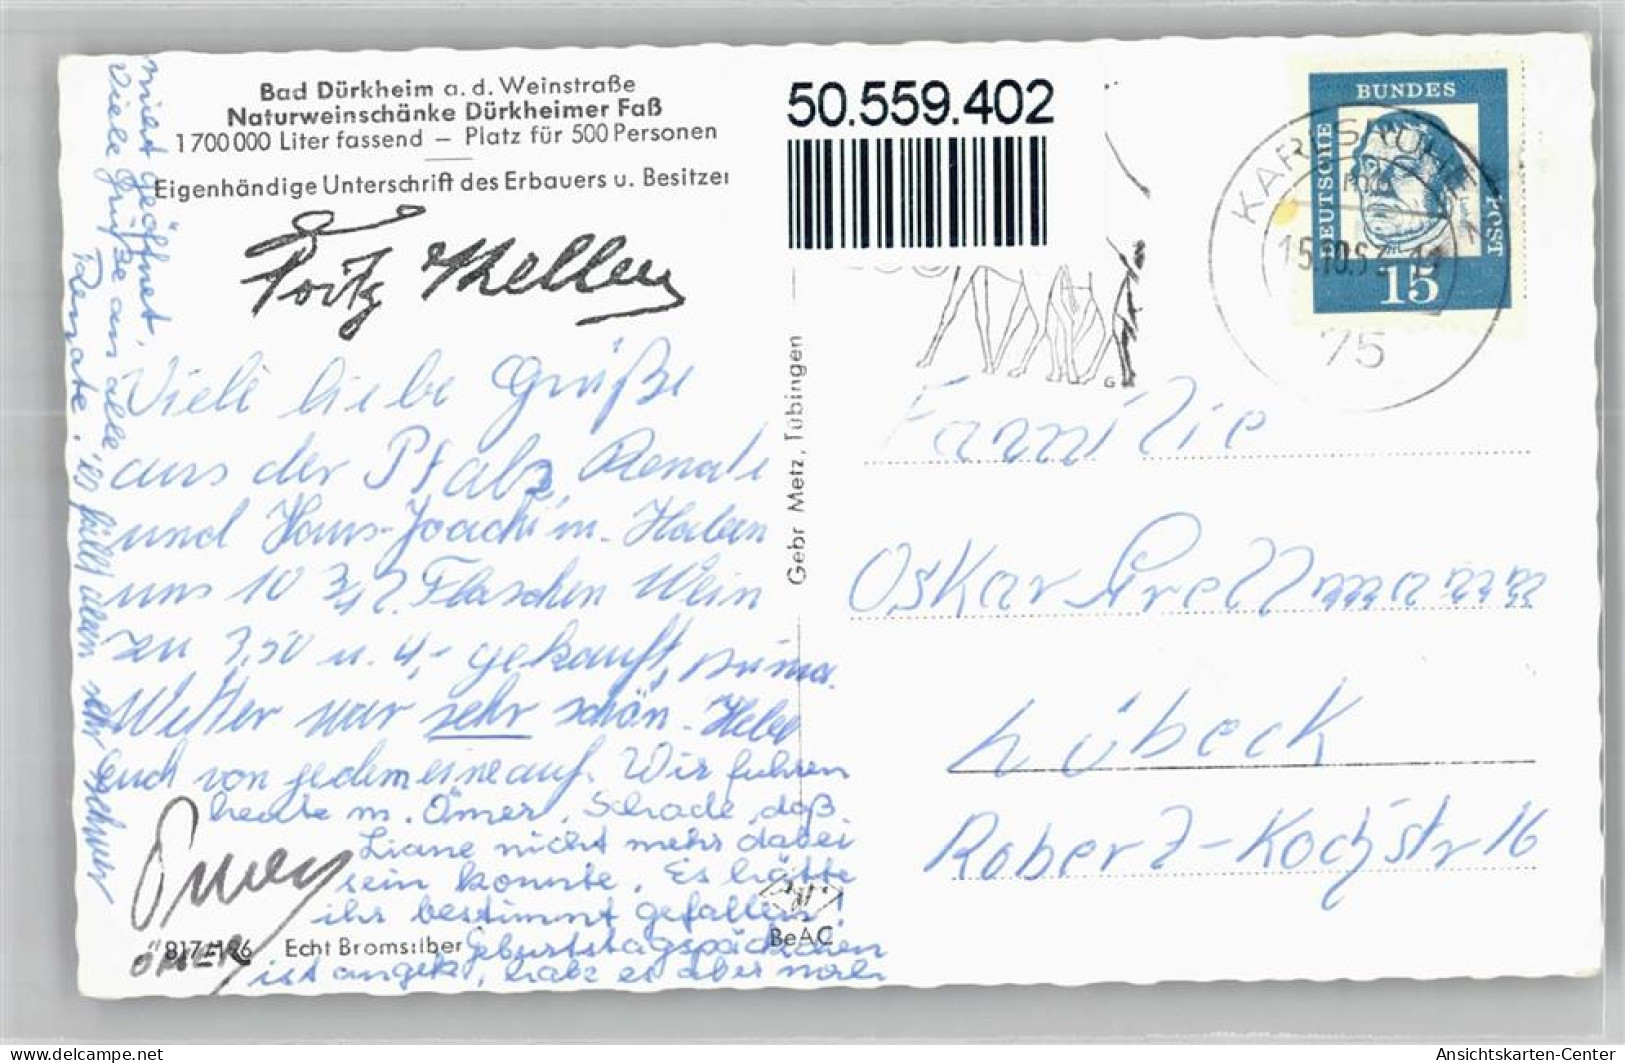 Bad Dürkheim a. d. Weinstraße
Naturweinschänke Dürkheimer Faß
1700000 Liter fassend — Platz für 500 Personen
Eigenhändige Unterschrift des Erbauers u. Besitzer
Fritz Keller
Viele liebe Grüße
aus der Pfalz, Renate
und Hans-Joachim. Haben
uns 10 Flaschen Wein
zu 3,50 u. 4,- gekauft, prima.
Wetter war sehr schön. Hebt
euch von jedem eine auf. Wir fuhren
heute m. Ömer. Schade, daß
Liane nicht mehr dabei
sein konnte. Es hätte
ihr bestimmt gefallen!
Geburtstagspäckchen
ist angek., habe es aber noch
nicht geöffnet.
Viele Grüße an alle
Renate.
Ömer
ÖMER
817 196 Echt Bromsilber
BeAC
Gebr Metz, Tübingen
50.559.402
DEUTSCHE
BUNDES
POST
15
KARLSRUHE
15.10.63
75
G
Familie
Oskar Prellmann
Lübeck
Robert-Kochstr 16
© www.ak-ansichtskarten.de
Ansichtskarten-Center